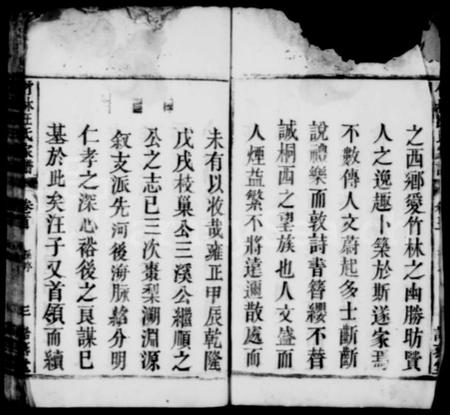 之西鄉愛竹林之幽勝昉賢
人之逸趣卜築於斯遂家焉
不數傳人文蔚起多士斷斷
說禮樂而敦詩書簪纓不替
誠桐西之望族也人文盛而
人煙益繁不將達邇散處而
未有以收哉雍正甲辰乾隆
戊戌枝巢公三溪公繼順之
公之志已三次棗梨溯淵源
敘支派先河後海脈絡分明
仁孝之深心裕後之良謀已
基於此矣汪子又首領而續
竹林汪氏宗譜